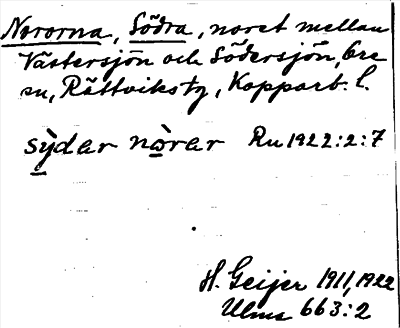 Nororna, Södra, noret mellan
Västersjön och Södersjön, Ore
sn, Rättviks tg, Kopparb. l.
sỳdar nòrar Ru 1922:2:7
H. Geijer 1911, 1922
Ulma 663:2